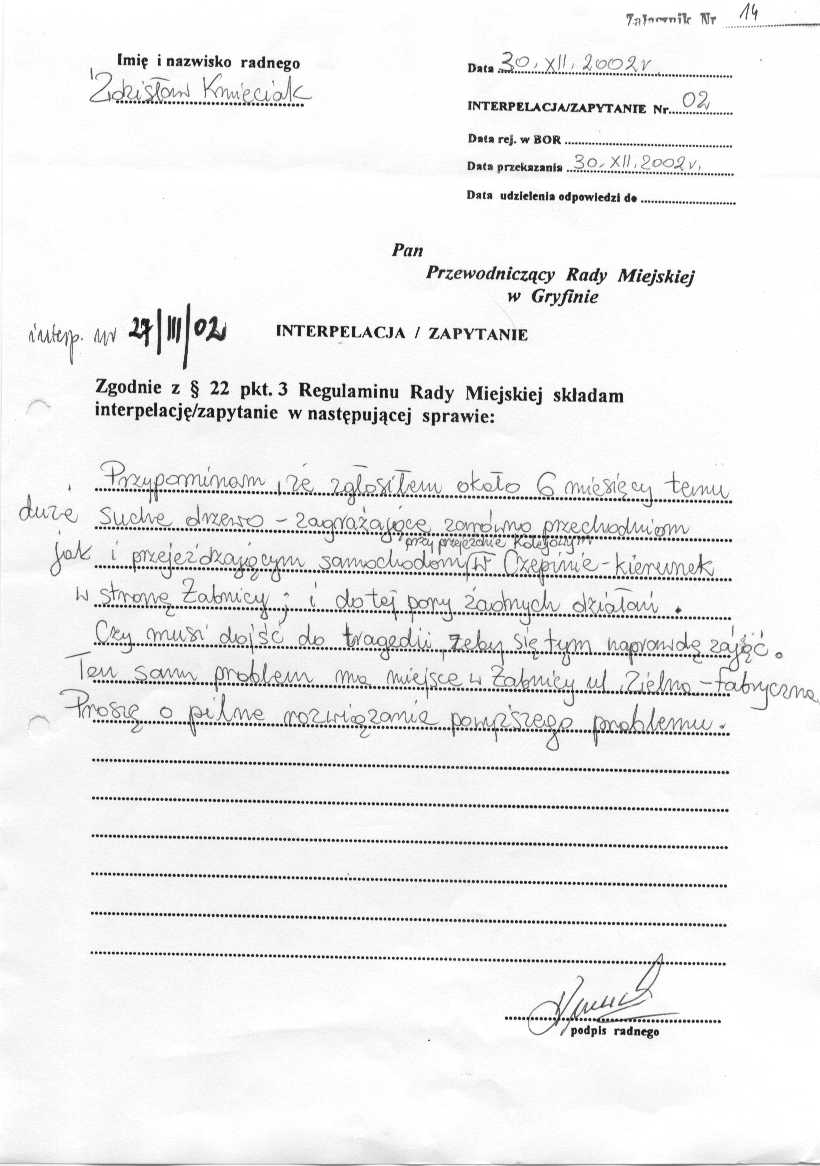 Załącznik Nr 14
Imię i nazwisko radnego
Zdzisław Kmieciak
Data 30. XII. 2002 r.
INTERPELACJA/ZAPYTANIE Nr 02
Data rej. w BOR
Data przekazania 30. XII. 2002 r.
Data udzielenia odpowiedzi do
Pan
Przewodniczący Rady Miejskiej
w Gryfinie
interp. nr 27/III/02
INTERPELACJA / ZAPYTANIE
Zgodnie z § 22 pkt. 3 Regulaminu Rady Miejskiej składam
interpelację/zapytanie w następującej sprawie:
Przypominam, że zgłosiłem około 6 miesięcy temu
duże suche drzewo - zagrażające zarówno przechodniom
przy przejeździe kolejowym
jak i przejeżdżającym samochodom/w Czepinie - kierunek
w stronę Żabnicy; i do tej pory żadnych działań.
Czy musi dojść do tragedii, żeby się tym naprawdę zająć.
Ten sam problem ma miejsce w Żabnicy ul. Zielna - Fabryczna
Proszę o pilne rozwiązanie powyższego problemu.
podpis radnego